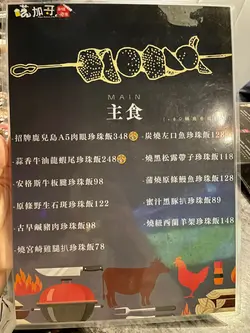 MAIN
主食
-招牌鹿兒島A5肉眼珍珠飯348
-蒜香牛油龍蝦尾珍珠飯248
-安格斯牛板腱珍珠飯98
-原條野生石斑珍珠飯122
-古早鹹豬肉珍珠飯98
-燒宮崎雞腿扒珍珠飯78
-炭燒左口魚珍珠飯128
-燒黑松露帶子珍珠飯118
-蒲燒原條鰻魚珍珠飯128
-蜜汁黑豚扒珍珠飯89
-燒紐西蘭羊架珍珠飯148